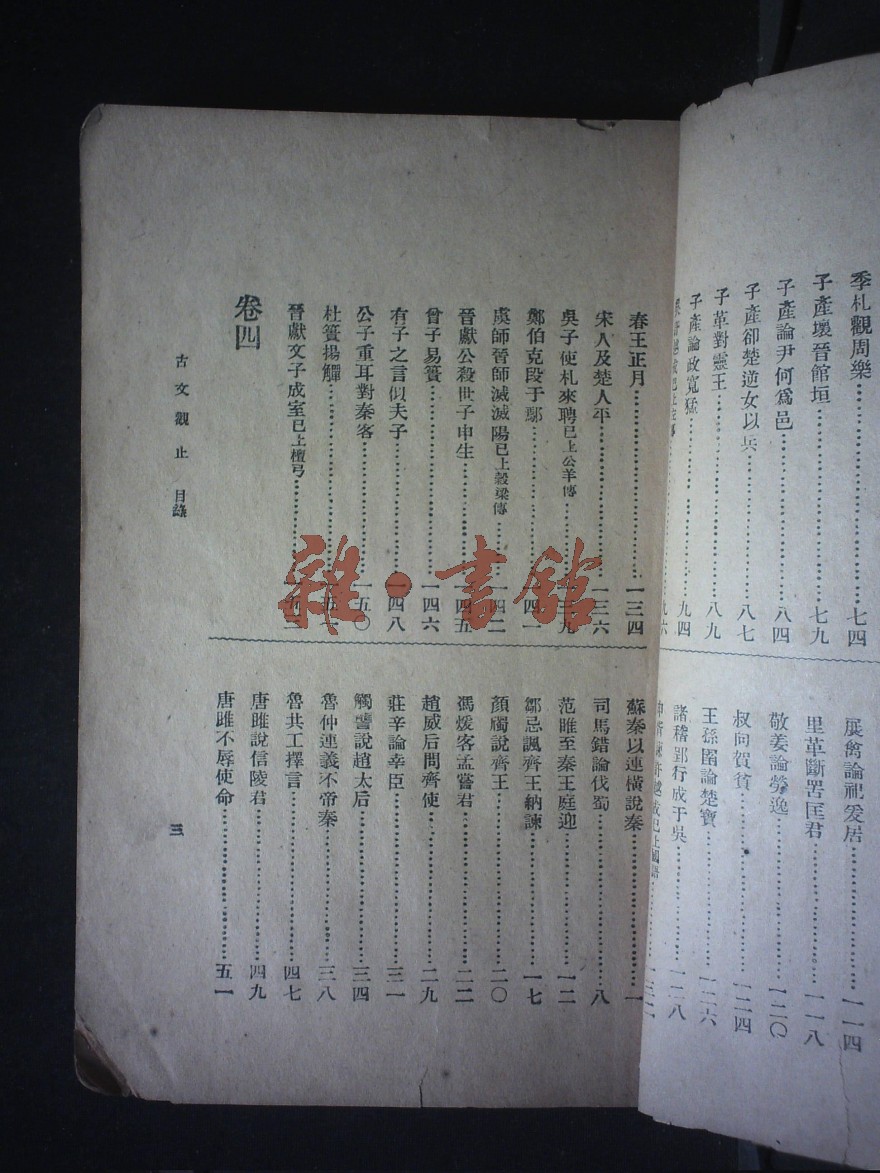 季札觀周樂……七四
子產壞晉館垣……七九
子產論尹何爲邑……八四
子產卻楚逆女以兵……八七
子革對靈王……八九
子產論政寬猛……九四
展禽論祀爰居……一一四
里革斷罟匡君……一一八
敬姜論勞逸……一二〇
叔向賀貧……一二四
王孫圉論楚寶……一二六
諸稽郢行成于吳……一二八
春王正月……一三四
宋人及楚人平……一三六
吳子使札來聘已上公羊傳……一三九
鄭伯克段于鄢……一四一
虞師晉師滅滅陽已上穀梁傳……一四二
晉獻公殺世子申生……一四五
曾子易簀……一四六
有子之言似夫子……一四八
公子重耳對秦客……一五〇
杜簣揚觶……一五一
晉獻文子成室已上檀弓……
卷四
蘇秦以連橫說秦……一
司馬錯論伐蜀……八
范雎至秦王庭迎……一二
鄒忌諷齊王納諫……一七
顏斶說齊王……二〇
馮煖客孟嘗君……二二
趙威后問齊使……二九
莊辛論幸臣……三一
觸讋說趙太后……三四
魯仲連義不帝秦……三八
魯共工擇言……四七
唐雎說信陵君……四九
唐雎不辱使命……五一
古文觀止 目錄
三
雜·書館